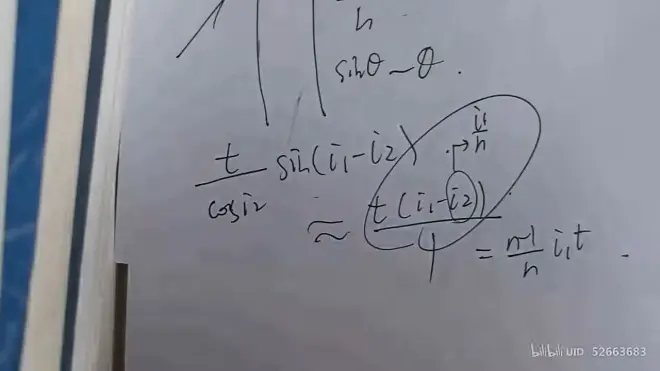 n
sinθ ~ θ .
t/cosi2 sin(i1-i2)
i1/n
≈ t(i1-i2)/1 = n-1/n i1t .
bilibili UID 52663683